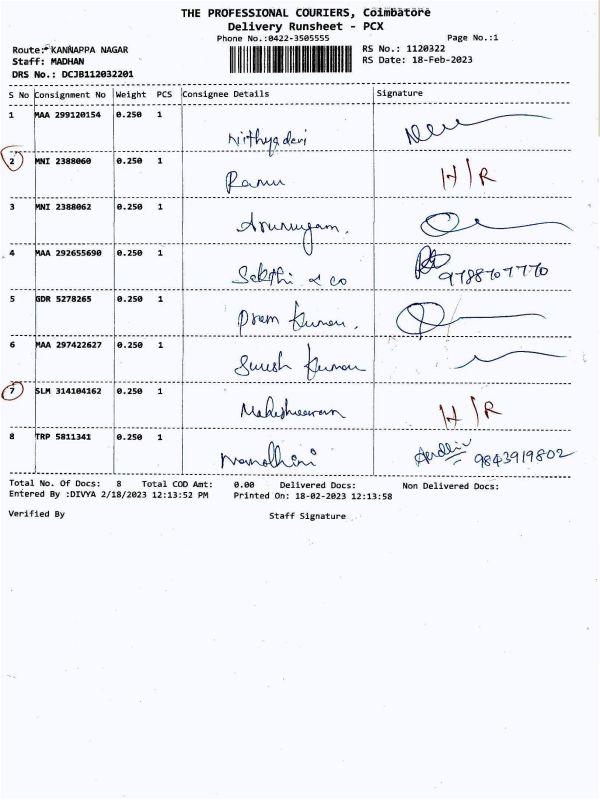 THE PROFESSIONAL COURIERS, Coimbatore
Delivery Runsheet - PCX
Phone No.:0422-3505555
Page No.:1
Route: KANNAPPA NAGAR
RS No.: 1120322
Staff: MADHAN
RS Date: 18-Feb-2023
DRS No.: DCJB112032201
S No Consignment No Weight PCS Consignee Details Signature
1 MAA 299120154 0.250 1
Nithyadevi
2 MNI 2388060 0.250 1
Ramu H/R
3 MNI 2388062 0.250 1
Arumugam.
4 MAA 292655690 0.250 1
Sakthi & co 9788707770
5 GDR 5278265 0.250 1
Prem Kumar.
6 MAA 297422627 0.250 1
Suresh Kumar
7 SLM 314104162 0.250 1
Maheshwaran H/R
8 TRP 5811341 0.250 1
9843919802
Total No. Of Docs: 8 Total COD Amt: 0.00 Delivered Docs: Non Delivered Docs:
Entered By :DIVYA 2/18/2023 12:13:52 PM Printed On: 18-02-2023 12:13:58
Verified By Staff Signature